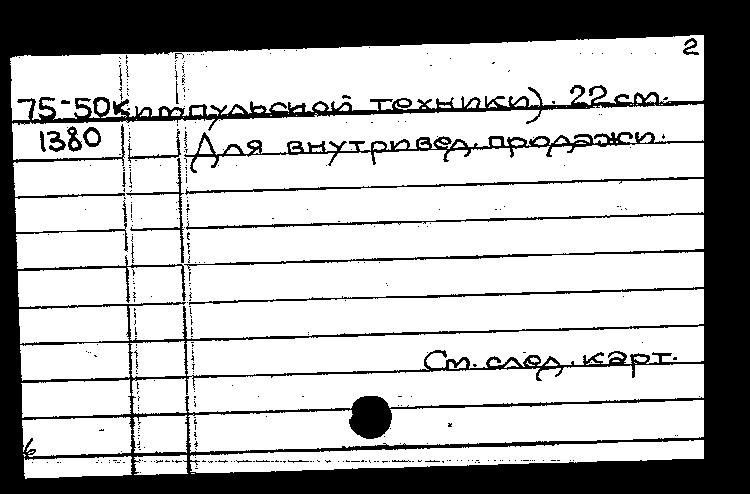 2
75-50к импульсной техники). 22 см.
1380 Для внутривед. продажи.
См. след. карт.
6